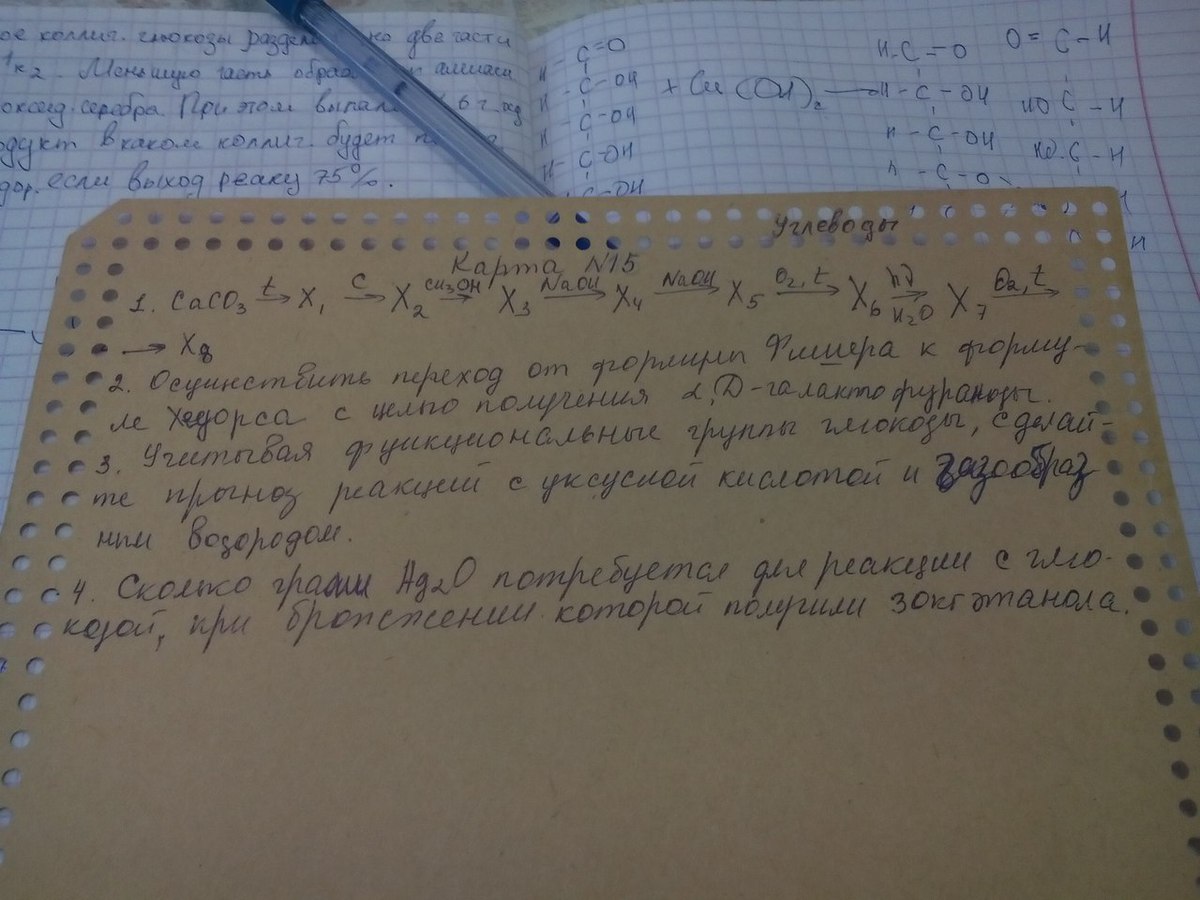 ое коллич. глюкозы раздел на две части
Меньшую часть обраб аммиач
оксид. серебра. При этом выпал 6 г.
одукт в каком коллич. будет
дор. если выход реакц 75%.
C=O
H-C-OH
H-C-OH
H-C-OH
C-OH
+ Cu(OH)₂ →
H-C=O
H-C-OH
H-C-OH
H-C-O
O=C-H
HO-C-H
HO-C-H
H
Углеводы
Карта N15
1. CaCO₃ t→ X₁ C→ X₂ CH₃OH→ X₃ NaOH→ X₄ NaOH→ X₅ O₂, t→ X₆ hν→ H₂O X₇ O₂, t→
→ X₈
2. Осуществить переход от формулы Фишера к форму-
ле Хеорса с целью получения α,D-галактофуранозы.
3. Учитывая функциональные группы глюкозы, сделай-
те прогноз реакций с уксусной кислотой и газообраз
ным водородом.
4. Сколько грамм Ag₂O потребуется для реакции с глю-
козой, при брожжении которой получили 30кг этанола.